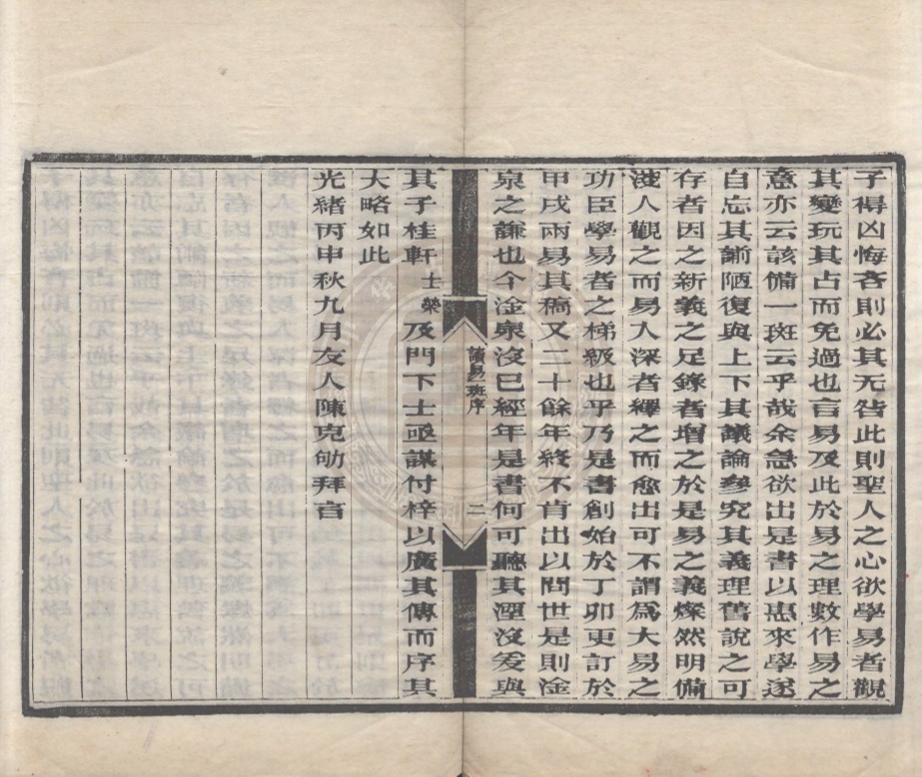 子得凶悔吝則必其无咎此則聖人之心欲學易者觀
其變玩其占而免過也言易及此於易之理數作易之
意亦云該備一斑云乎哉余急欲出是書以惠來學遂
自忘其谫陋復與上下其議論參究其義理舊說之可
存者因之新義之足錄者增之於是易之義燦然明備
淺人觀之而易入深者繹之而愈出可不謂爲大易之
功臣學易者之梯級也乎乃是書創始於丁卯更訂於
甲戌兩易其稿又二十餘年終不肯出以問世是則淦
泉之謙也今淦泉沒已經年是書何可聽其湮沒爰與
讀易一斑序
二
其子桂軒士榮及門下士亟謀付梓以廣其傳而序其
大略如此
光緒丙申秋九月友人陳克劬拜言